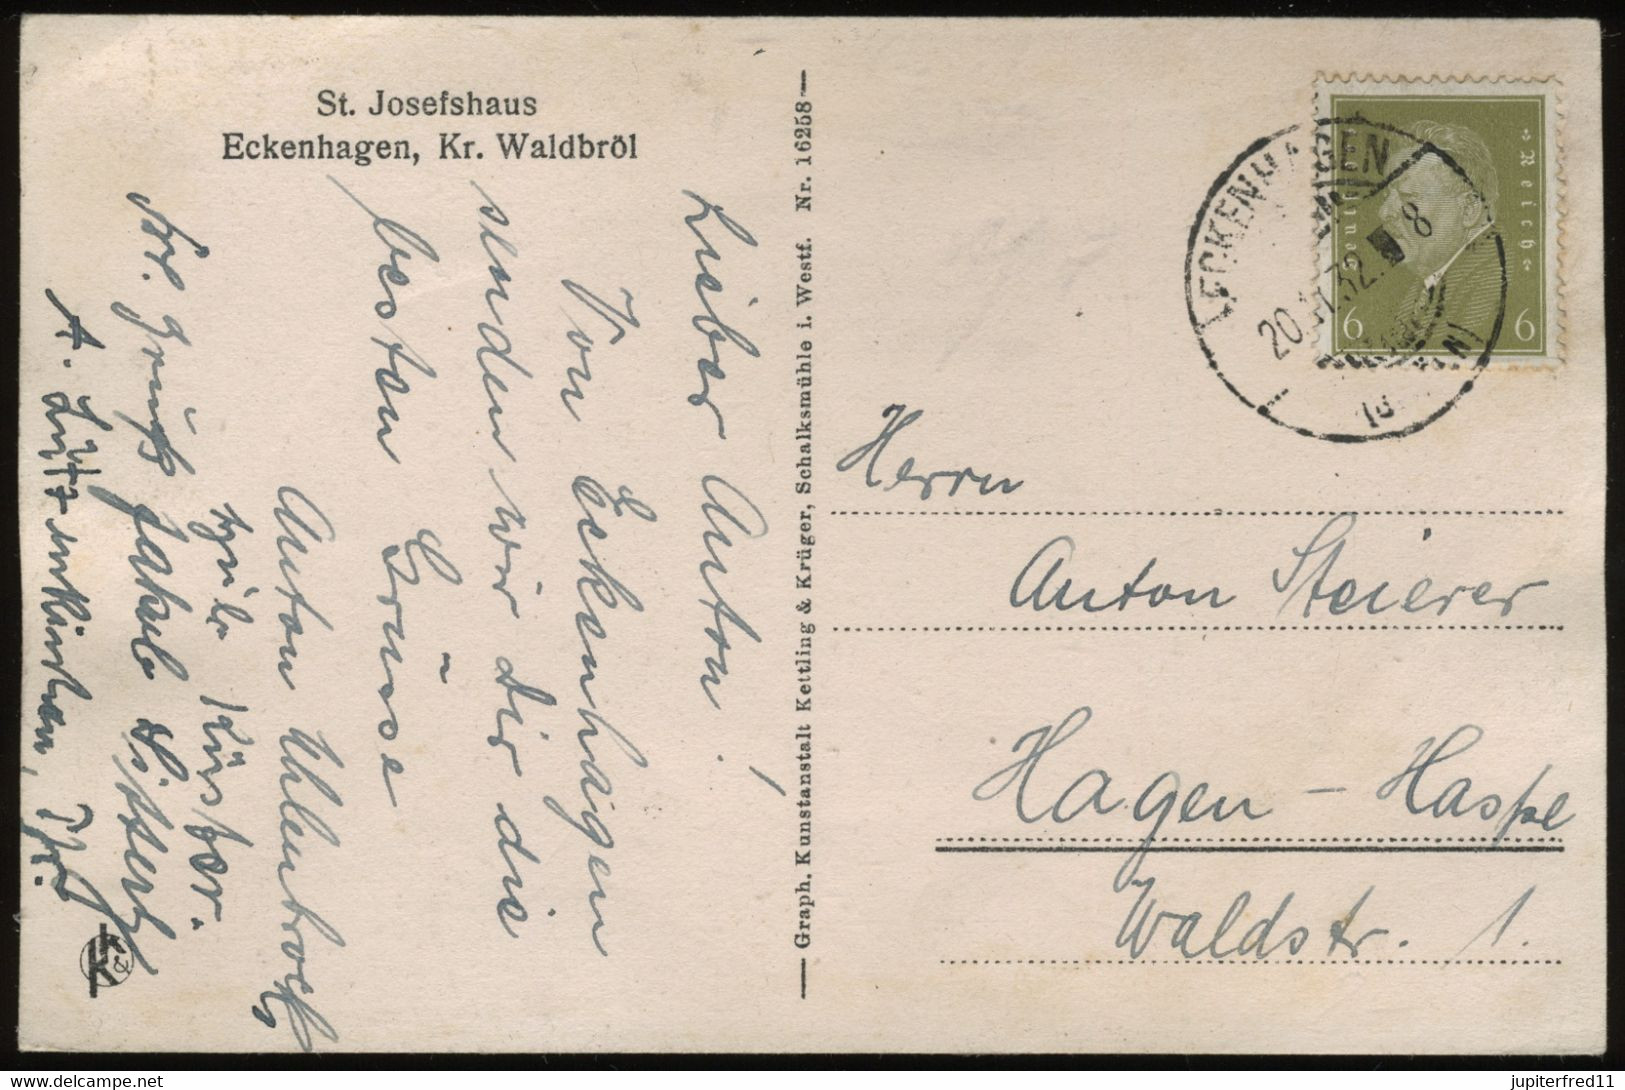 St. Josefshaus
Eckenhagen, Kr. Waldbröl
Lieber Anton!
Von Eckenhagen
senden wir dir die
besten Grüsse
Anton Uhlenbrock
Küster.
Fr. Gruß Jakob
A. Lütz
Graph. Kunstanstalt Kettling & Krüger, Schalksmühle i. Westf. Nr. 16258
ECKENHAGEN
20. 32. 8
Deutsches Reich
6 6
Herrn
Anton Steierer
Hagen - Haspe
Waldstr. 1.
K&K
www.delcampe.net
jupiterfred11